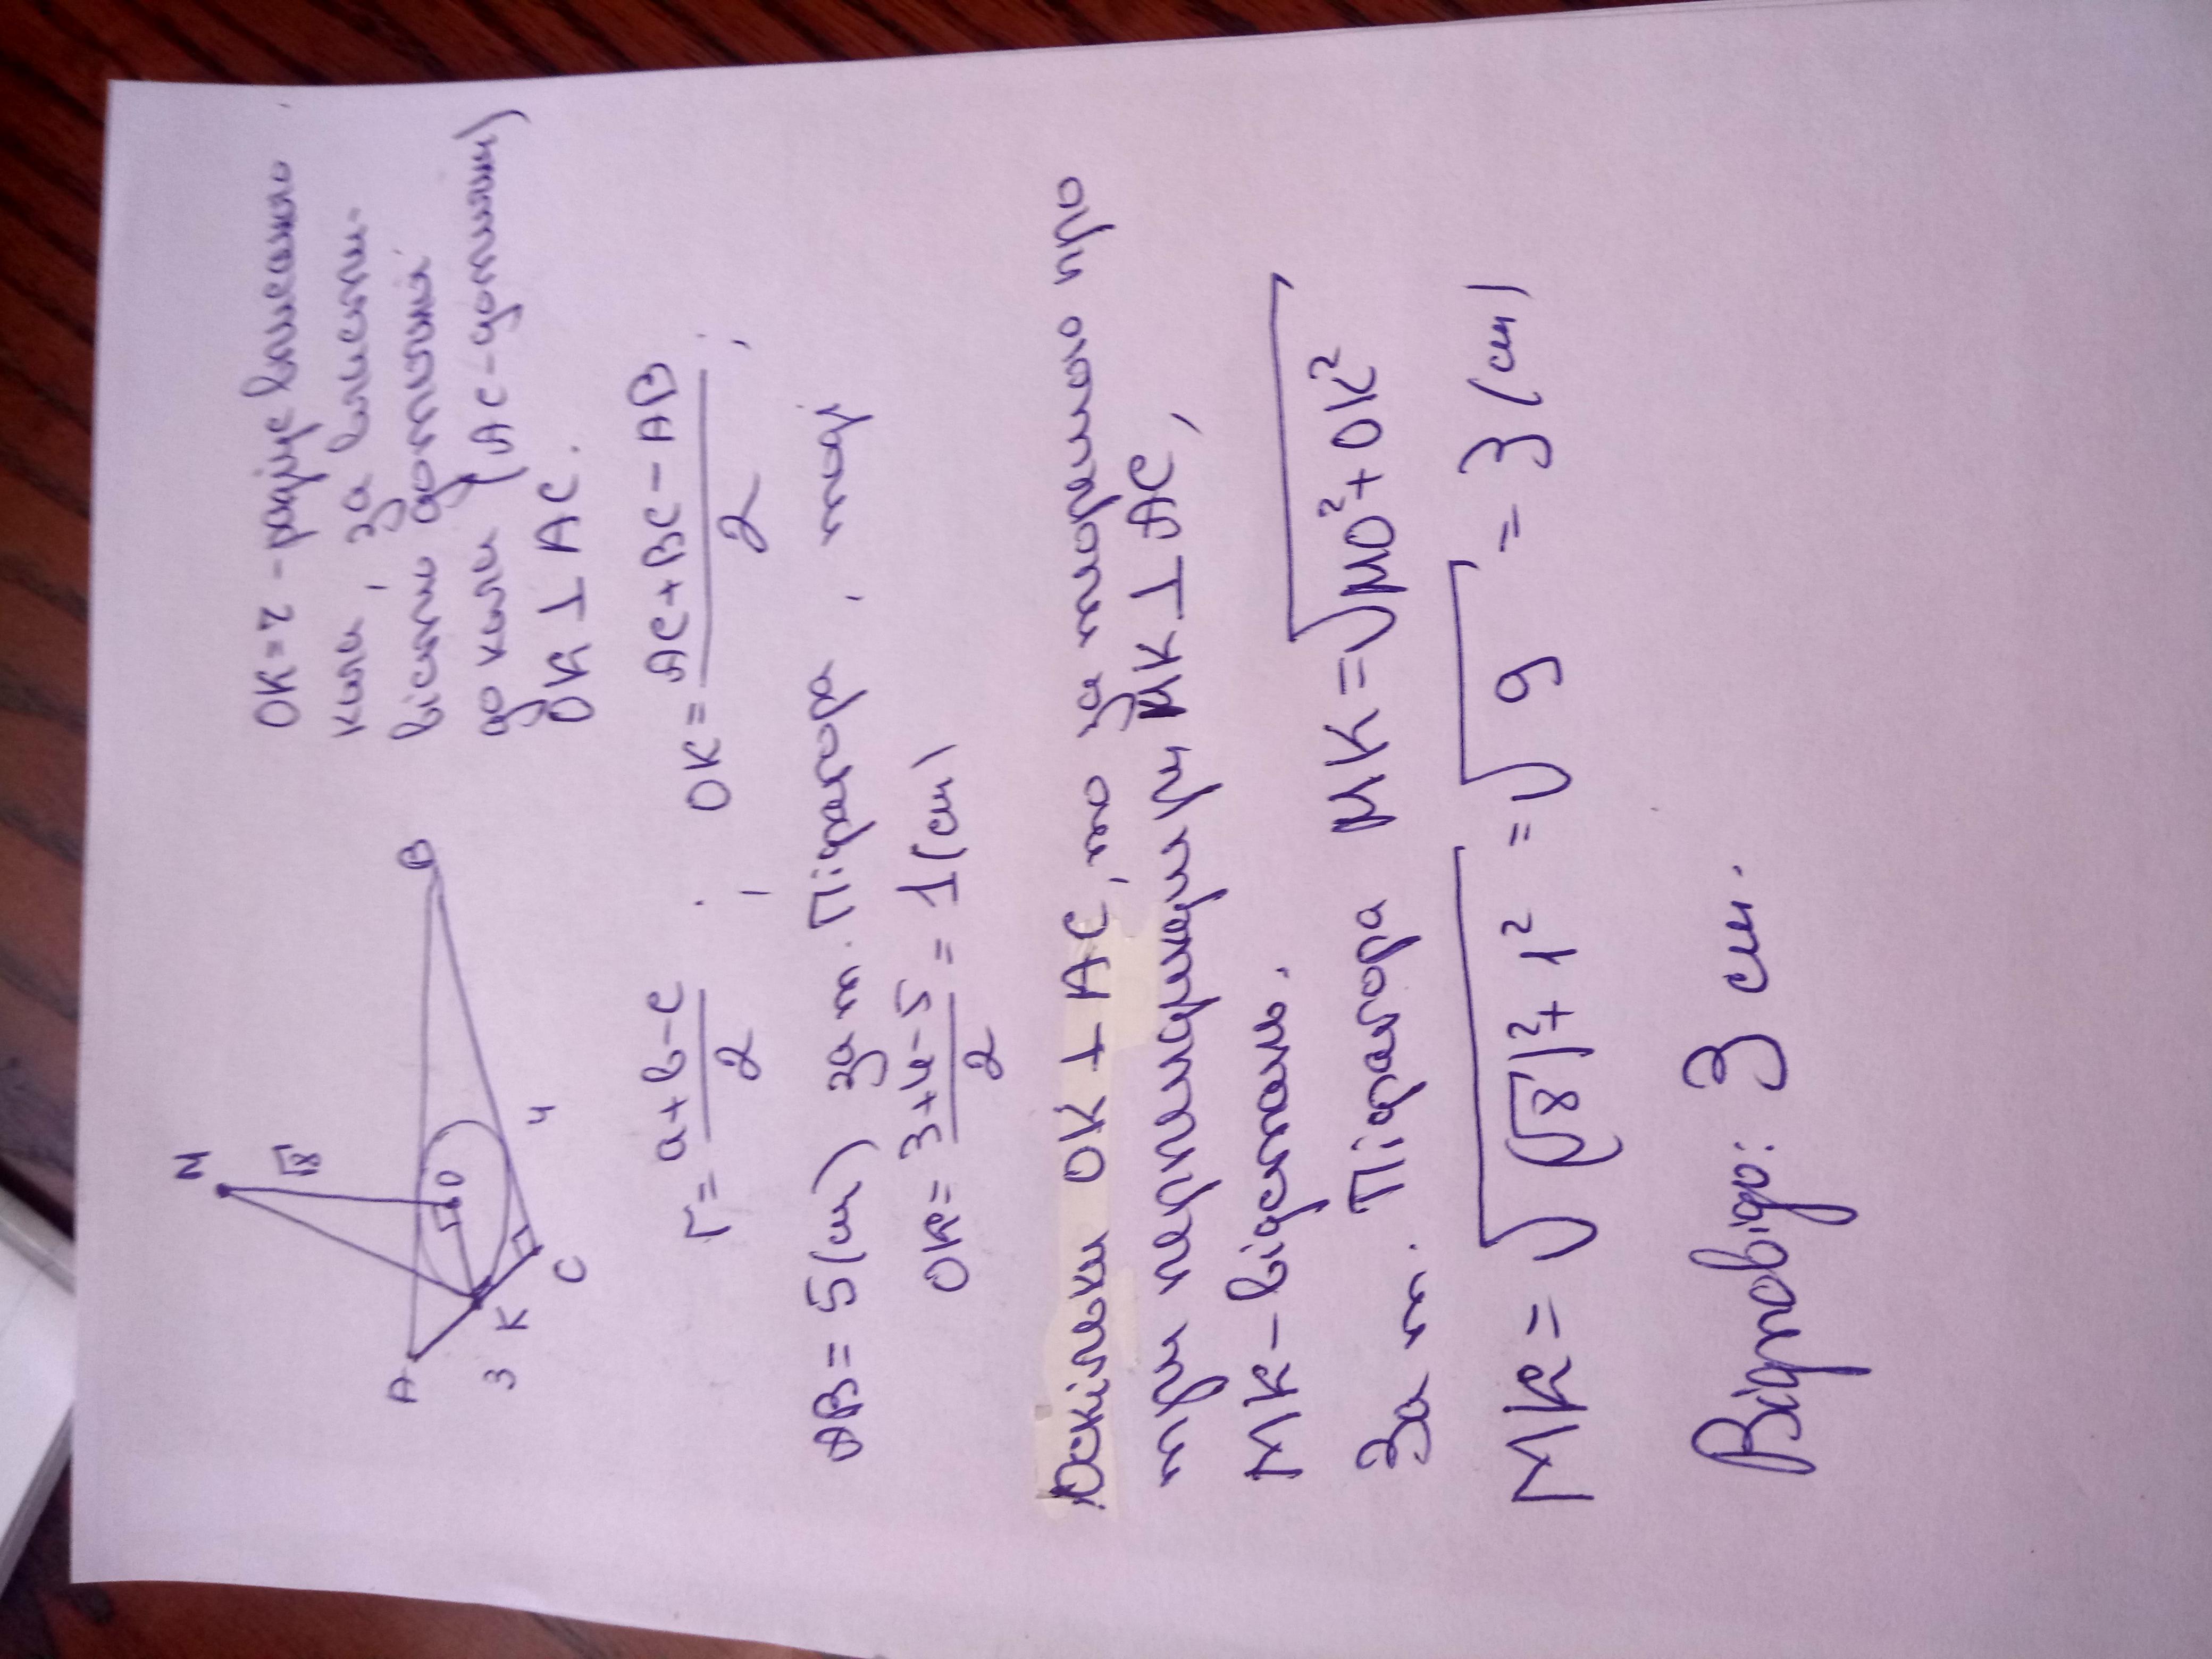 M
√8
A
O
B
3
K
C
4
OK = r - радіус вписаного
кола, за власти-
вістю дотичної
до кола (AC - дотична)
OK ⊥ AC.
r = a+b-c / 2 ; OK = AC+BC-AB / 2 ;
AB = 5 (см) за т. Піфагора, тоді
OK = 3+4-5 / 2 = 1 (см)
Оскільки OK ⊥ AC, то за теоремою про
три перпендикуляри MK ⊥ AC,
MK - відстань.
За т. Піфагора MK = √MO²+OK²
MK = √(√8)²+1² = √9 = 3 (см)
Відповідь: 3 см.